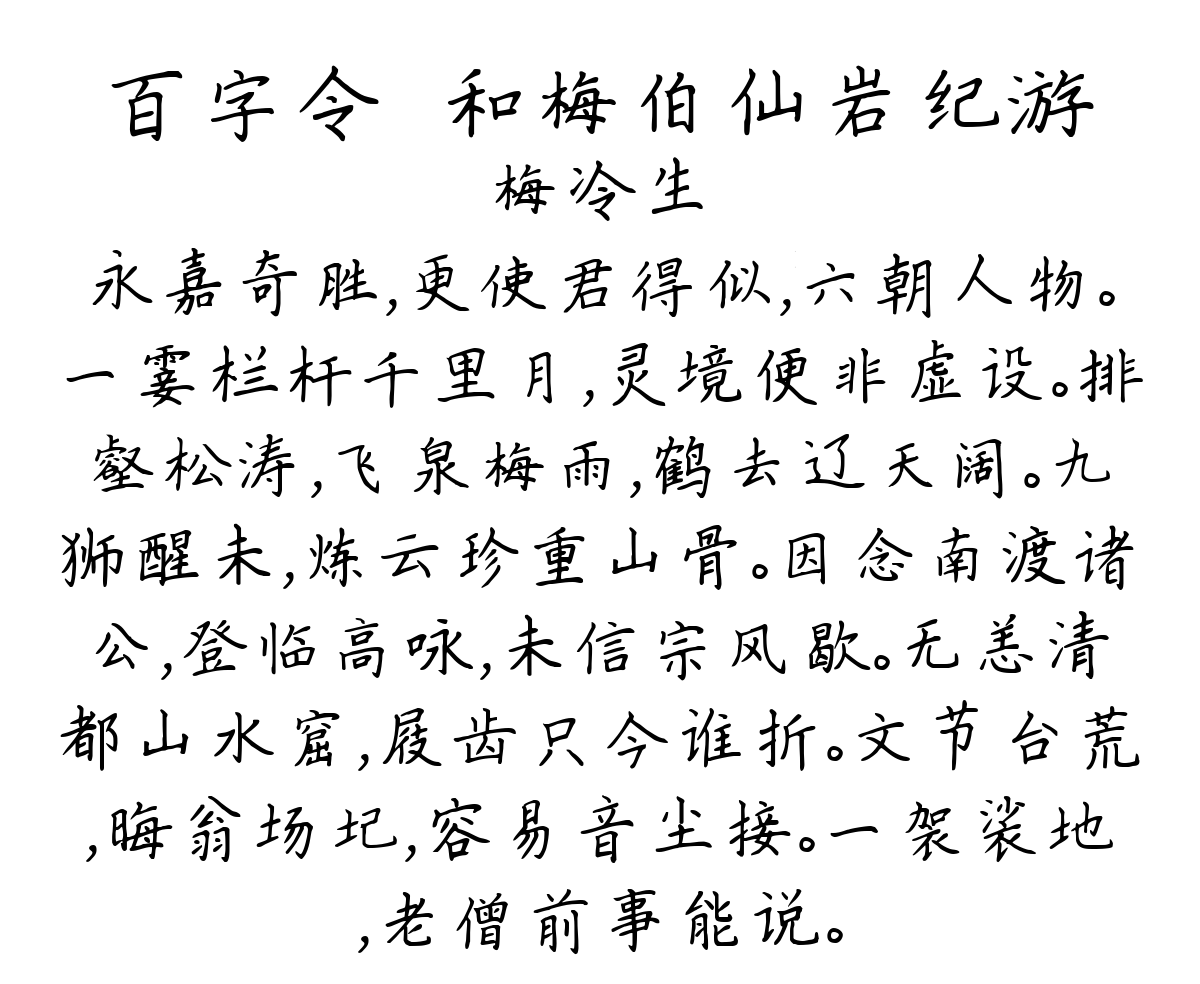 百字令 和梅伯仙岩纪游
梅冷生
永嘉奇胜,更使君得似,六朝人物。
一霎栏杆千里月,灵境便非虚设。排
壑松涛,飞泉梅雨,鹤去辽天阔。九
狮醒未,炼云珍重山骨。因念南渡诸
公,登临高咏,未信宗风歇。无恙清
都山水窟,屐齿只今谁折。文节台荒
,晦翁场圮,容易音尘接。一袈裟地
,老僧前事能说。